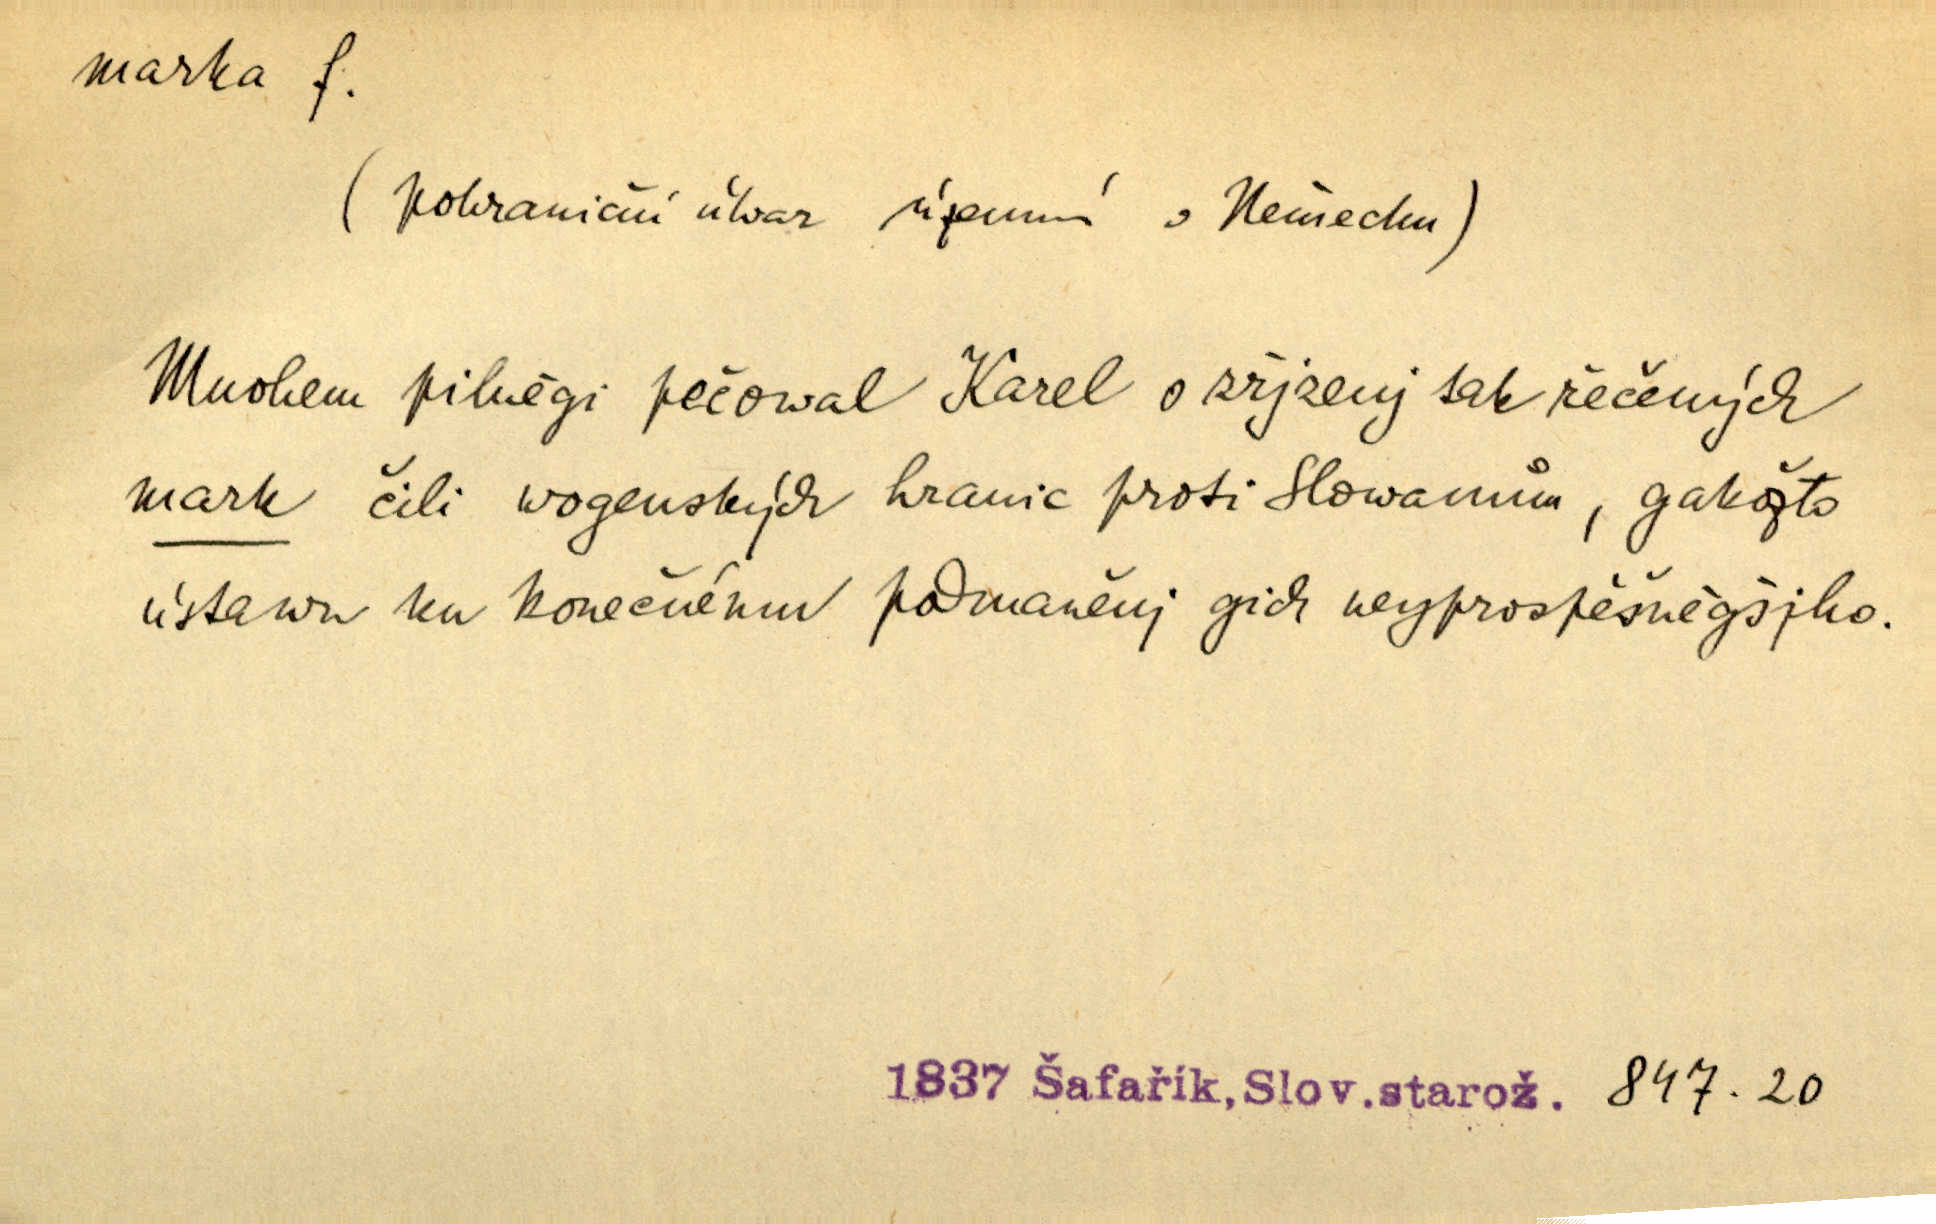 marka f.
(pohraniční útvar územní v Německu)
Mnohem pilněgi pečowal Karel o zřjzenj tak řečených
mark čili wogenských hranic proti Slowanům, gakožto
ústawu ku konečnému podmaněnj gich neyprospěšněgšjho.
1837 Šafařík, Slov. starož. 847. 20